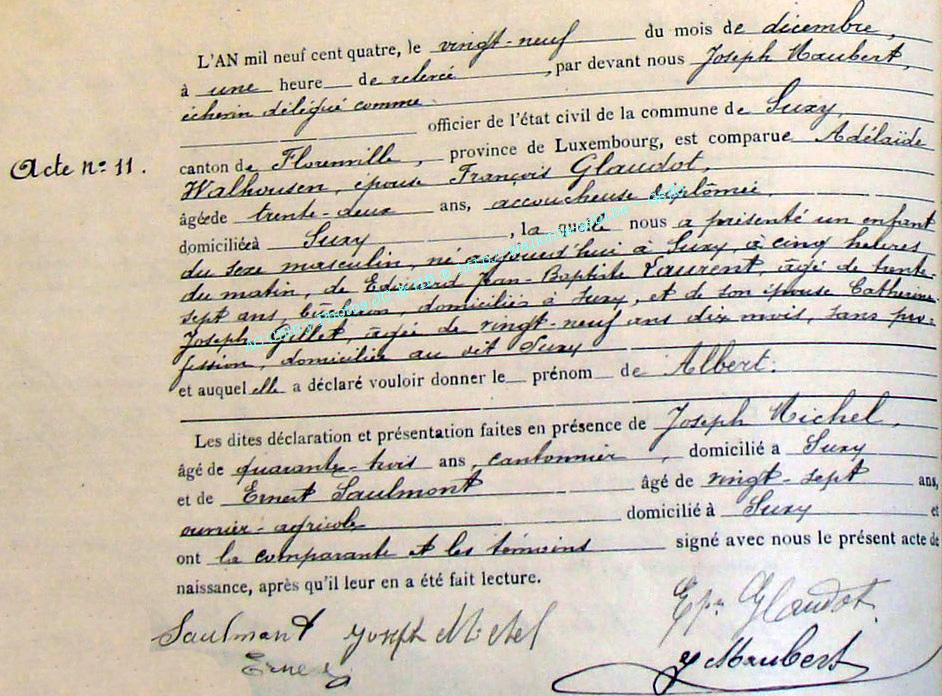 L'AN mil neuf cent quatre, le vingt-neuf du mois de décembre,
à une heure de relevé, par devant nous Joseph Maubert,
échevin délégué comme
officier de l'état civil de la commune de Suxy,
Acte n° 11.
canton de Florenville, province de Luxembourg, est comparue Adélaïde
Walhousen, épouse François Glaudot,
âgée de trente-deux ans, accoucheuse diplômée
domiciliée à Suxy, la quelle nous a présenté un enfant
du sexe masculin, né aujourd'hui à Suxy, à cinq heures
du matin, de Edouard Jean-Baptiste Laurent, âgé de trente-
sept ans, bûcheron, domicilié à Suxy, et de son épouse Catherine-
Joseph Gillet, âgée de vingt-neuf ans dix mois, sans pro-
fession, domiciliée au dit Suxy
et auquel elle a déclaré vouloir donner le prénom de Albert.
Les dites déclaration et présentation faites en présence de Joseph Michel,
âgé de quarante-trois ans, cantonnier, domicilié a Suxy
et de Ernest Saulmont âgé de vingt-sept ans,
ouvrier-agricole domicilié à Suxy et
ont la comparante et les témoins signé avec nous le présent acte de
naissance, après qu'il leur en a été fait lecture.
Eps Glaudot
Saulmont Joseph Michel
Ernest
J Maubert